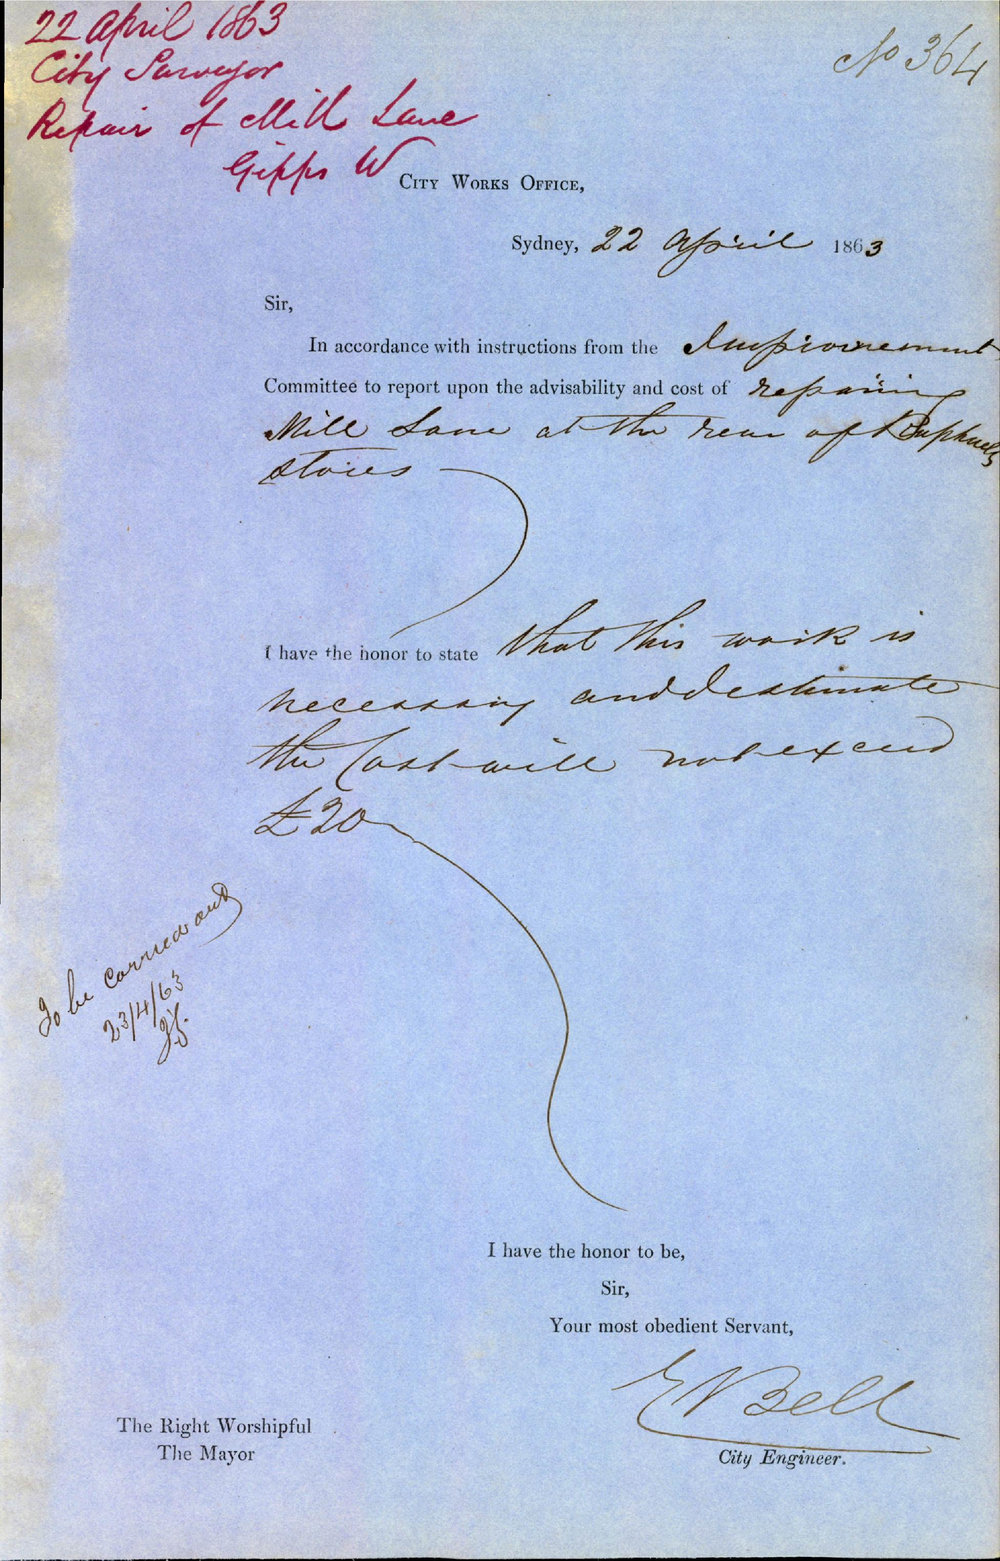 22 April 1863
City Surveyor
Repair of Mill Lane
Gipps W
No 364
City Works Office,
Sydney, 22 April 1863
Sir,
In accordance with instructions from the Improvement
Committee to report upon the advisability and cost of repairing
Mill Lane at the rear of Raphaels
stores
I have the honor to state that this work is
necessary and I estimate
the Cost will not exceed
£20
To be carried out
23/4/63
I have the honor to be,
Sir,
Your most obedient Servant,
E Bell
City Engineer.
The Right Worshipful
The Mayor